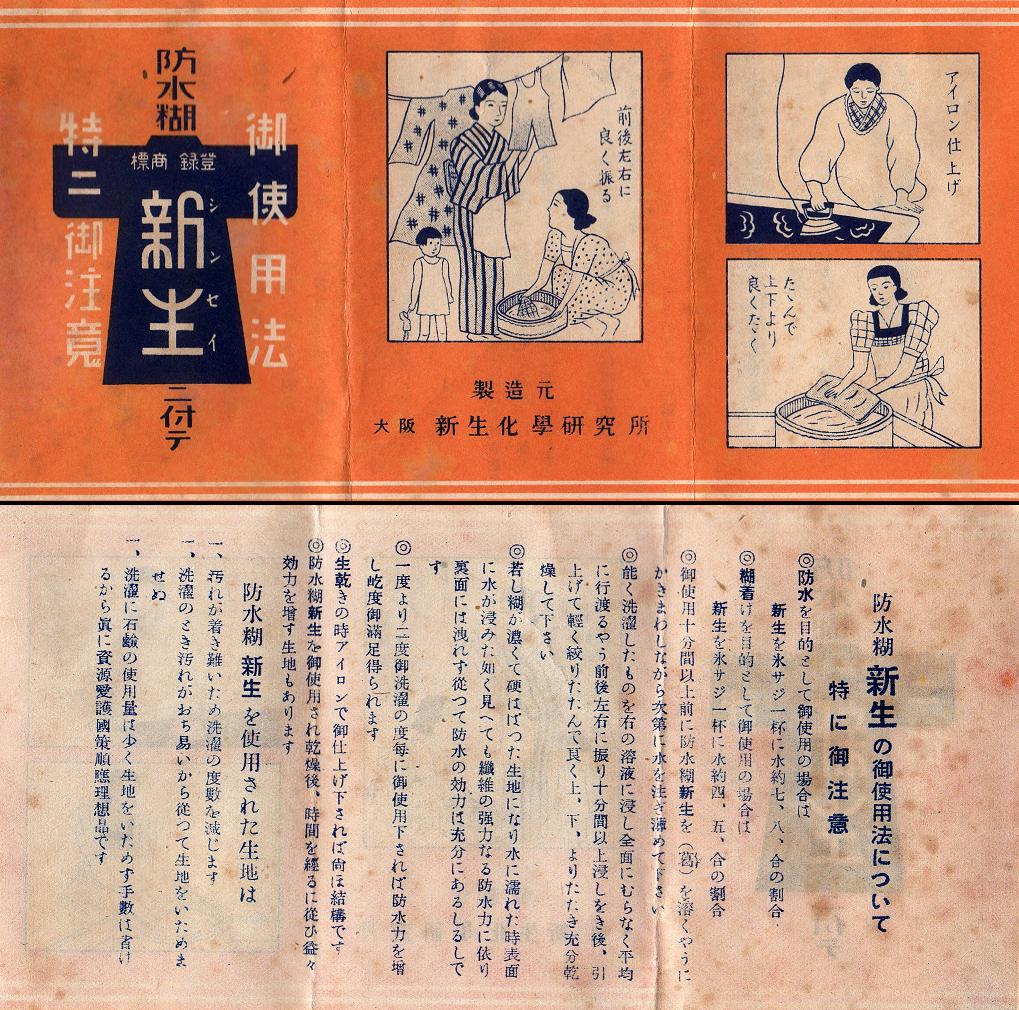 御使用法
防水糊
登録 商標
新生
シンセイ
ニ付テ
特ニ御注意
前後左右に
良く振る
製造元
大阪 新生化學研究所
アイロン仕上げ
たゝんで
上下より
良くたゝく
防水糊 新生の御使用法について
特に御注意
◎防水を目的として御使用の場合は
新生を氷サジ一杯に水約七、八、合の割合
◎糊着けを目的として御使用の場合は
新生を氷サジ一杯に水約四、五、合の割合
◎御使用十分間以上前に防水糊新生を(葛)を溶くやうに
かきまわしながら次第に水を注ぎ薄めて下さい
◎能く洗濯したものを右の溶液に浸し全面にむらなく平均
に行渡るやう前後左右に振り十分間以上浸しをき後、引
上げて軽く絞りたたんで良く上、下、よりたたき充分乾
燥して下さい
◎若し糊が濃くて硬はばつた生地になり水に濡れた時表面
に水が浸みた如く見へても纖維の强力なる防水力に依り
裏面には洩れず從つて防水の効力は充分にあるしるしで
す
◎一度より二度御洗濯の度每に御使用下されば防水力を增
し屹度御滿足得られます
◎生乾きの時アイロンで御仕上げ下されば尙ほ結構です
◎防水糊新生を御使用され乾燥後、時間を經るに從ひ益々
効力を增す生地もあります
防水糊 新生を使用された生地は
一、汚れが着き難いため洗濯の度數を減じます
一、洗濯のとき汚れがおち易いから從つて生地をいためま
せぬ
一、洗濯に石鹼の使用量は少く生地をいためず手數は省け
るから眞に資源愛護國策順應理想品です